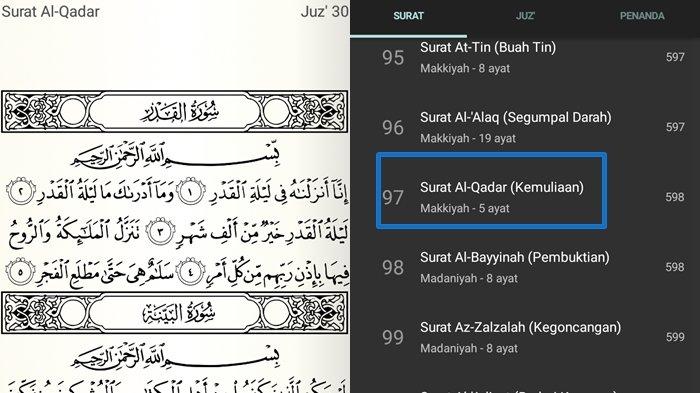 Surat Al-Qadar
Juz' 30
سُورَةُ القَدْرِ
بِسْمِ اللَّهِ الرَّحْمَٰنِ الرَّحِيمِ
إِنَّا أَنزَلْنَٰهُ فِى لَيْلَةِ ٱلْقَدْرِ ١ وَمَآ أَدْرَىٰكَ مَا لَيْلَةُ ٱلْقَدْرِ ٢
لَيْلَةُ ٱلْقَدْرِ خَيْرٌ مِّنْ أَلْفِ شَهْرٍ ٣ تَنَزَّلُ ٱلْمَلَٰٓئِكَةُ وَٱلرُّوحُ
فِيهَا بِإِذْنِ رَبِّهِم مِّن كُلِّ أَمْرٍ ٤ سَلَٰمٌ هِىَ حَتَّىٰ مَطْلَعِ ٱلْفَجْرِ ٥
سُورَةُ البَيِّنَةِ
بِسْمِ اللَّهِ الرَّحْمَٰنِ الرَّحِيمِ
SURAT
JUZ'
PENANDA
95
Surat At-Tin (Buah Tin)
Makkiyah - 8 ayat
597
96
Surat Al-'Alaq (Segumpal Darah)
Makkiyah - 19 ayat
597
97
Surat Al-Qadar (Kemuliaan)
Makkiyah - 5 ayat
598
98
Surat Al-Bayyinah (Pembuktian)
Madaniyah - 8 ayat
598
99
Surat Az-Zalzalah (Kegoncangan)
Madaniyah - 8 ayat
599